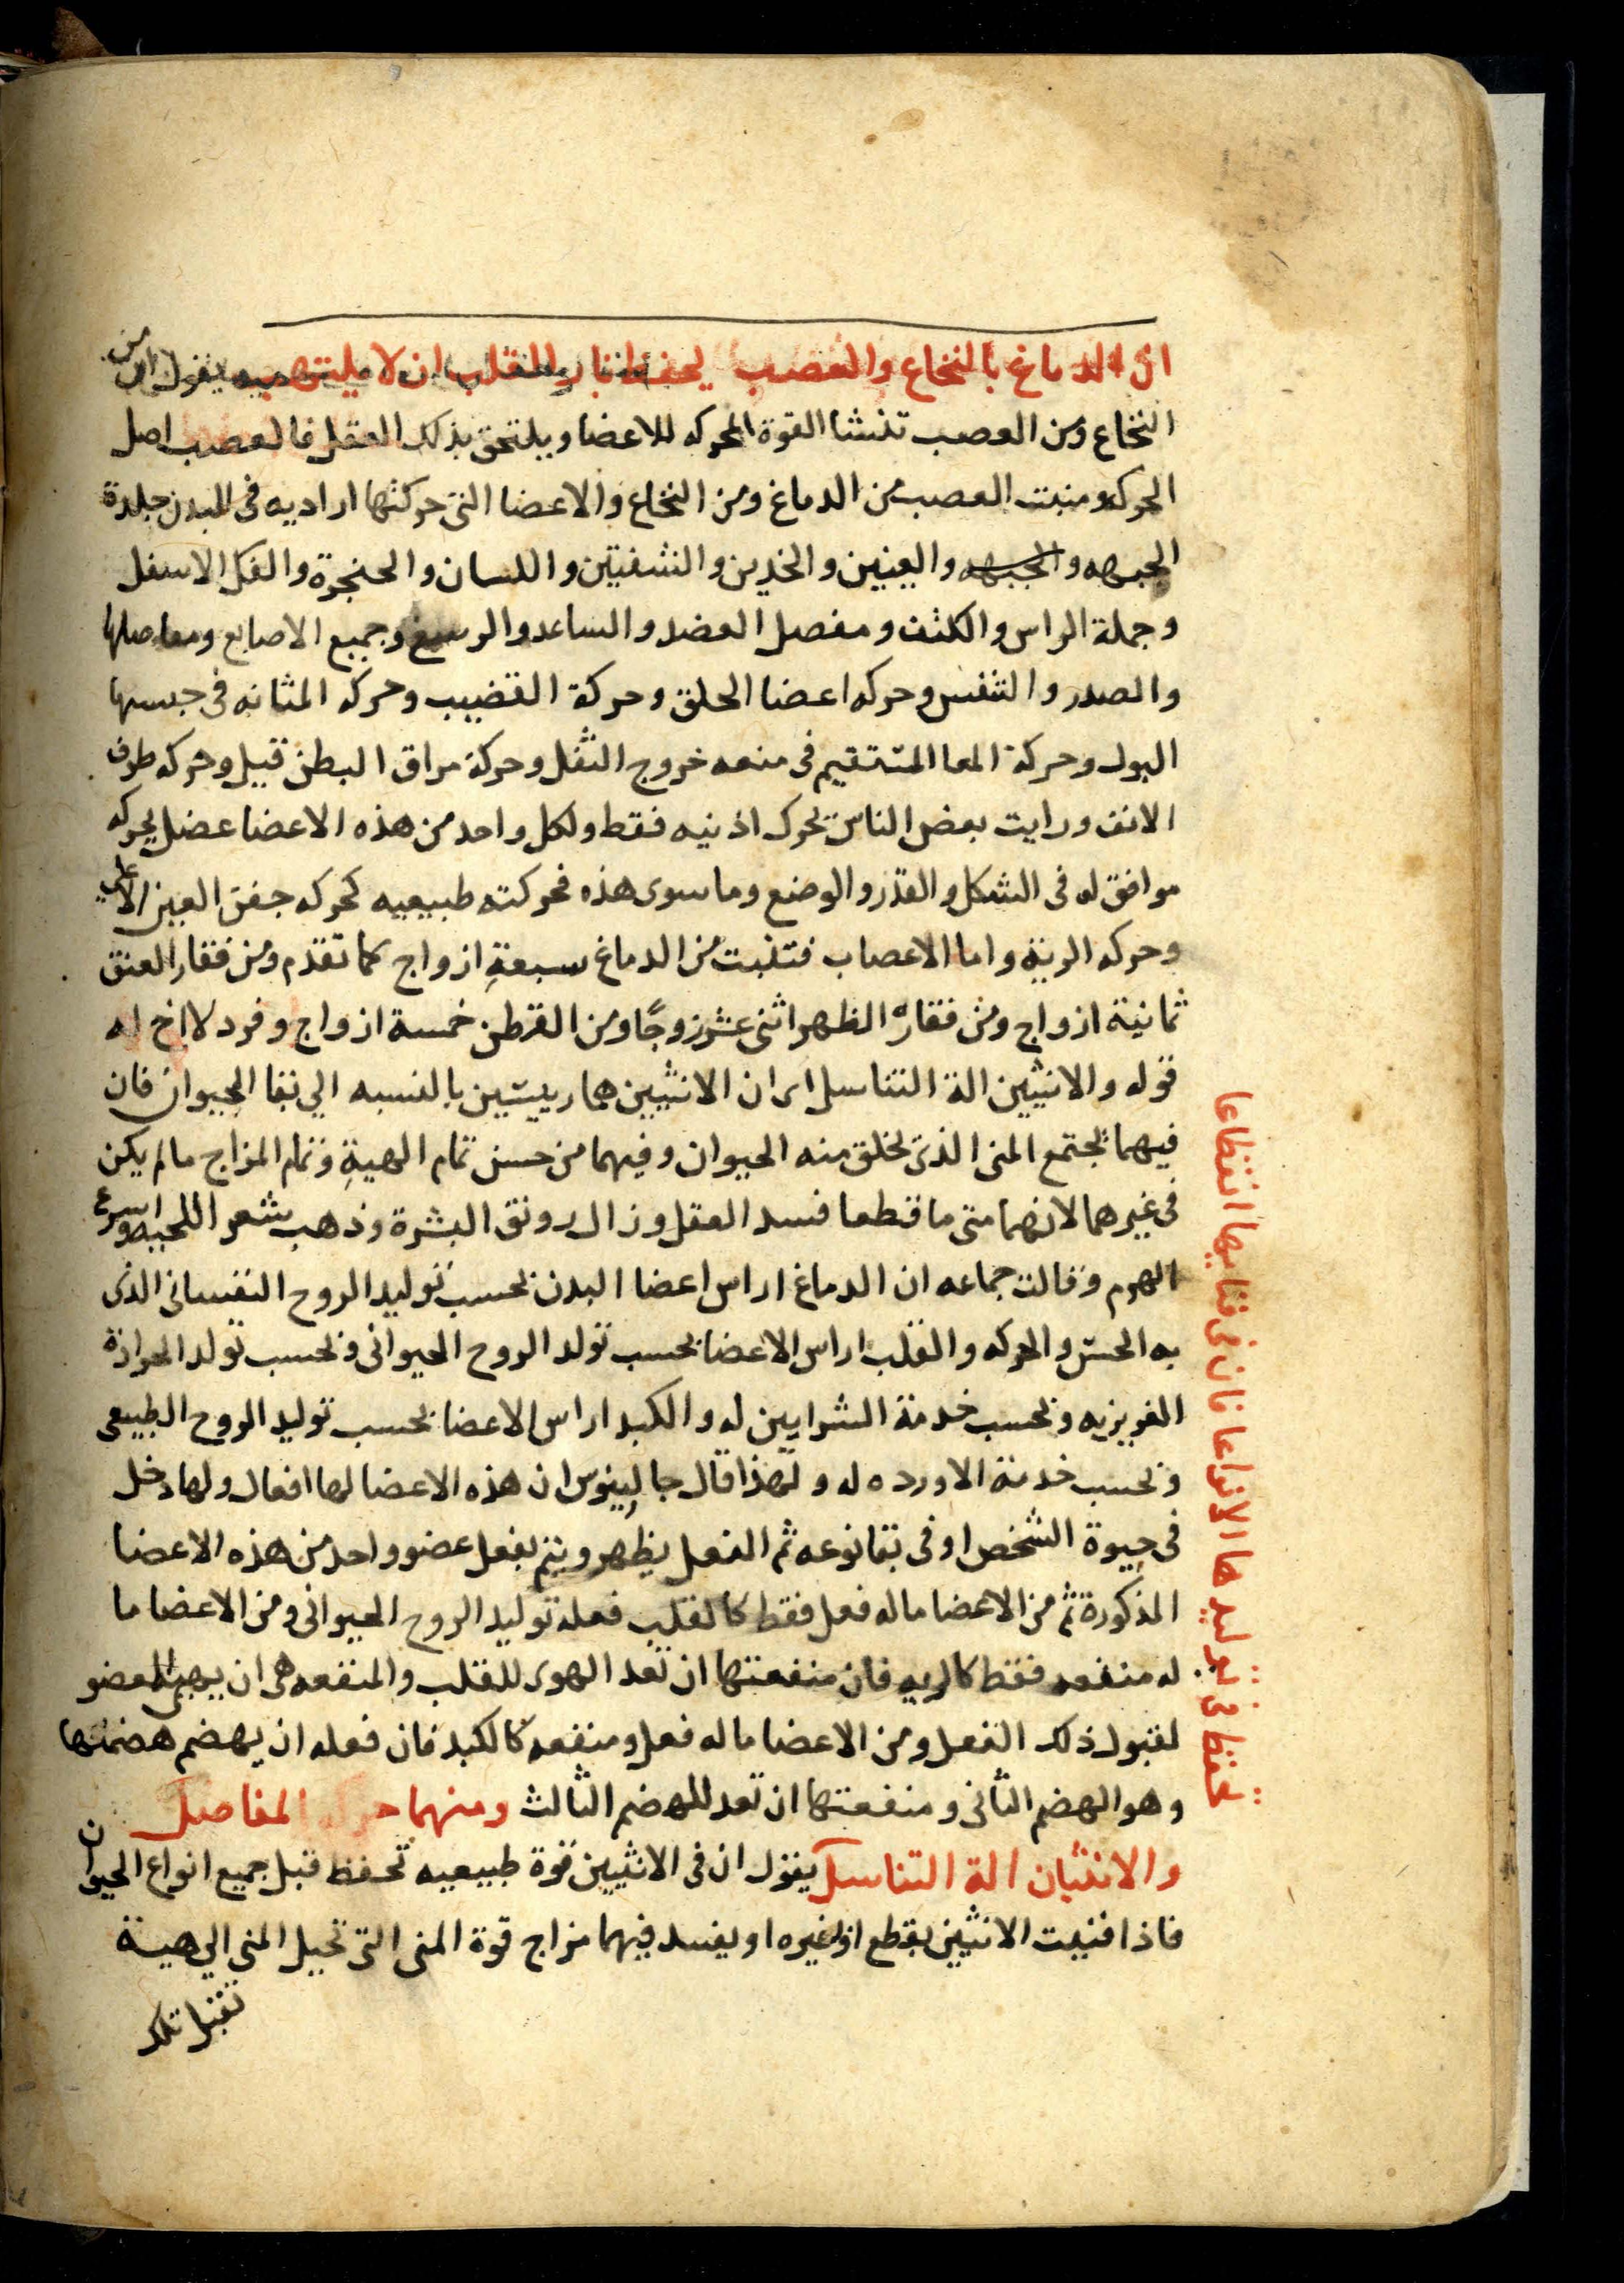 ان الدماغ بالنخاع والعصب يقول ان من
النخاع ومن العصب تنشا القوة المحركه للاعضا ويلتحق بذلك العقل فالعصب اصل
الحركه ومنبت العصب من الدماغ ومن النخاع والاعضا التى حركتها اراديه فى البدن جلدة
الجبهه والجبهه والعينين والخدين والشفتين واللسان والحنجرة والفك الاسفل
وجملة الراس والكتف ومفصل العضد والساعد والرسغ وجميع الاصابع ومفاصلها
والصدر والتنفس وحركه اعضا الحلق وحركة القضيب وحركه المثانه فى حبسها
البول وحركة المعا المستقيم فى منعه خروج الثفل وحركة مراق البطن قيل وحركه طرف
الانف ورايت بعض الناس يحرك اذنيه فقط ولكل واحد من هذه الاعضا عضل يحركه
موافق له فى الشكل والقدر والوضع وما سوى هذه فحركته طبيعيه كحركه جفن العين الاعلى
وحركه الرية واما الاعصاب فتنبت من الدماغ سبعة ازواج كما تقدم ومن فقار العنق
ثمانية ازواج ومن فقارة الظهر اثنى عشر زوجًا ومن القطن خمسة ازواج وفرد لا اخ له
قوله والانثيين الة التناسل اى ان الانثيين هما رييستين بالنسبه الى بقا الحيوان فان
فيهما يجتمع المنى الذى يخلق منه الحيوان وفيهما من حسن تمام الهية وتمام المزاج مالم يكن
فى غيرهما لانهما متى ما قطعا فسد العقل وزال رونق البشرة وذهب شعر اللحيه واسرع
الهرم وقالت جماعه ان الدماغ اراس اعضا البدن بحسب توليد الروح النفسانى الذى
به الحس والحركه والقلب اراس الاعضا بحسب تولد الروح الحيوانى وبحسب تولد الحرارة
الغريزيه وبحسب خدمة الشرايين له والكبد اراس الاعضا بحسب توليد الروح الطبيعى
وبحسب خدمة الاورده له ولهذا قال جالينوس ان هذه الاعضا لها افعال ولها دخل
فى حيوة الشخص او فى بقا نوعه ثم الفعل يظهر ويتم بفعل عضو واحد من هذه الاعضا
المذكورة ثم من الاعضا ماله فعل فقط كالقلب فعله توليد الروح الحيوانى ومن الاعضا ما
له منفعه فقط كالريه فان منفعتها ان تعد الهوى للقلب والمنفعه هى ان يهيى العضو
لقبول ذلك الفعل ومن الاعضا ماله فعل ومنفعه كالكبد فان فعله ان يهضم
وهو الهضم الثانى ومنفعتها ان تعد للهضم الثالث ومنهما المفاصل
والانثيان الة التناسل يقول ان فى الانثيين قوة طبيعيه تحفظ قبل جميع انواع الحيوان
فاذا فنيت الانثيين بقطع او غيره او يفسد فيهما مزاج قوة المنى التى تحيل المنى الى هية
تلك
تحفظ فى توليدها الانواعا فان فى فنايها انقطاعا